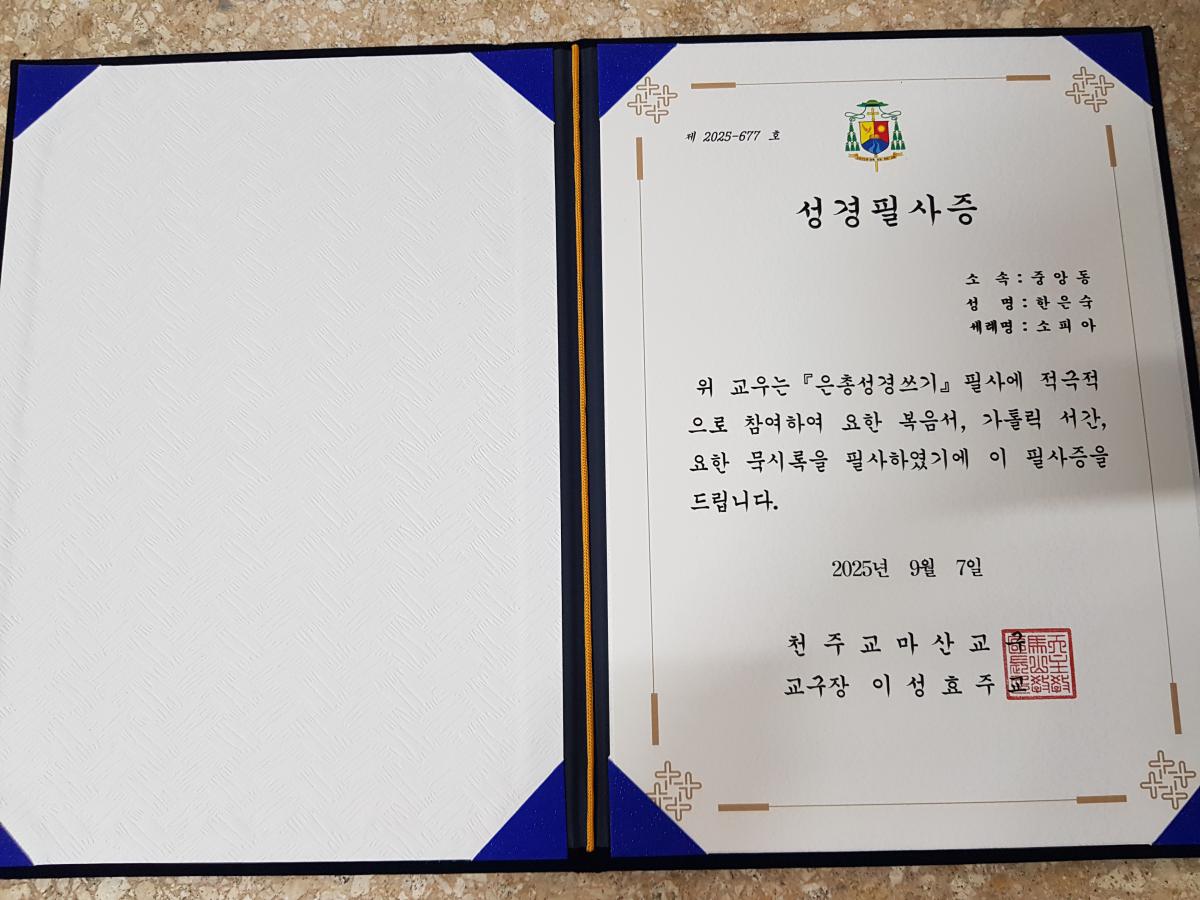 제 2025-677 호
성경필사증
소 속 : 중 앙 동
성 명 : 한 은 숙
세례명 : 소 피 아
위 교우는 『은총성경쓰기』 필사에 적극적
으로 참여하여 요한 복음서, 가톨릭 서간,
요한 묵시록을 필사하였기에 이 필사증을
드립니다.
2025년 9월 7일
천 주 교 마 산 교 구
교구장 이 성 효 주 교